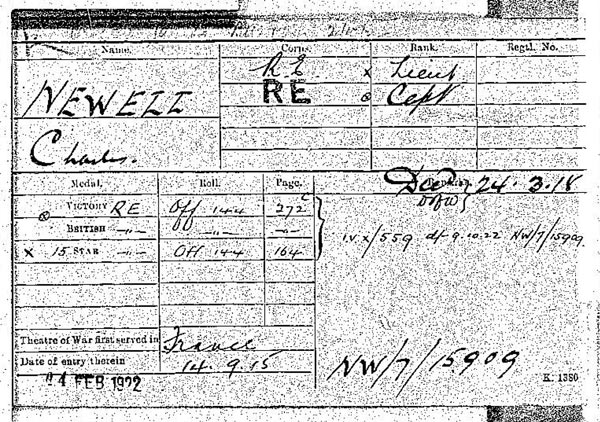 Name. Corps. Rank. Regtl. No.
NEWELL R E x Lieut
RE ⊗ Capt
Charles.
Medal. Roll. Page. Dced 24.3.18
⊗ VICTORY RE Off 144 272c DofW
BRITISH -"- -"- -"-
x 15 STAR -"- Off 144 164 IV x/559 df 9.10.22 NW/7/15909
Theatre of War first served in France
Date of entry therein 14.9.15
04 FEB 1922 NW/7/15909 K. 1380